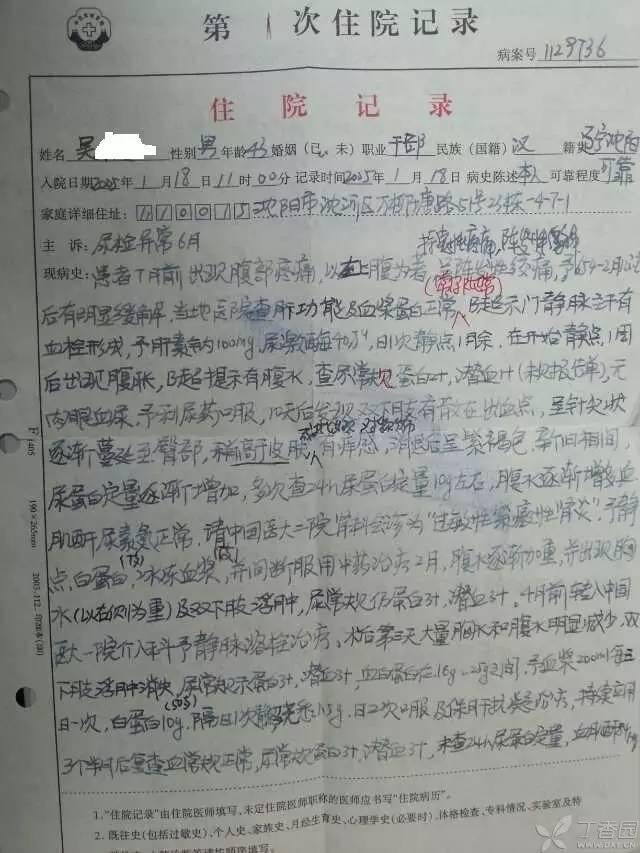 第 1 次住院记录
病案号 1129736
住 院 记 录
姓名 吴 性别 男 年龄 43 婚姻(已、未) 职业 干部 民族(国籍) 汉 籍 辽宁沈阳
入院日期2025年 1 月 18 日 11 时 00 分 记录时间2025年 1 月 18 日 病史陈述 本人 可靠程度 可靠
家庭详细住址: 沈阳市沈河区万柳塘路51号23栋-4-7-1
主 诉: 尿检异常6月
现病史: 患者7月前出现腹部疼痛,以上腹为著,呈阵发性绞痛,予654-2
后有明显缓解,当地医院查肝功能及血浆蛋白正常,B超提示门静脉主干有
血栓形成,予肝素钠100mg,尿激酶每40万,日1次静点1月余,在开始静点1周
后出现腹胀,B超提示有腹水,查尿常规蛋白2+,潜血1+(未见报告单),无
肉眼血尿,予利尿药口服,10天后发现双下肢有散在出血点,呈针尖状
逐渐蔓延至臀部,稍高于皮肤,有痒感,消退后呈紫褐色,新旧相间,
尿蛋白定量逐渐增加,多次查24h尿蛋白定量10g左右,腹水逐渐增多,血
肌酐尿素氮正常,请中国医大二院肾科会诊为“过敏性紫癜性肾炎”,予静
点白蛋白,冰冻血浆,并间断服用中药治疗2月,腹水逐渐加重,并出现胸
水(以右侧为重)及双下肢浮肿,尿常规仍蛋白3+,潜血3+。4月前转入中国
医大一院介入科予静脉溶栓治疗。术后第三天大量胸水和腹水明显减少,双
下肢浮肿消失,尿常规示蛋白3+,潜血3+,血白蛋白在16g-25g之间,予血浆200ml每三
日一次,白蛋白10g,隔日1次静点 日2次口服及保肝抗凝治疗,持续应用
3个半月后复查血常规正常,尿常规蛋白3+,潜血3+,未查24h尿蛋白定量,血肌酐
1.“住院记录”由住院医师填写,未定住院医师职称的医师应书写“住院病历”。
2.既往史(包括过敏史)、个人史、家族史、月经生育史、心理学史(必要时)、体格检查、专科情况、实验室及特
丁香园
WWW.DXY.CN